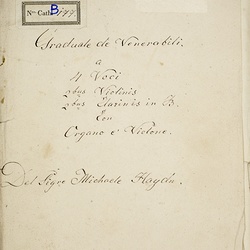 Nro Cat: B 147
Graduale de Venerabili.
a
4 Voci
2bus Violinis
2bus Clarinis in B.
Con
Organo e Violone.
Del Sigre Michaele Haydn.